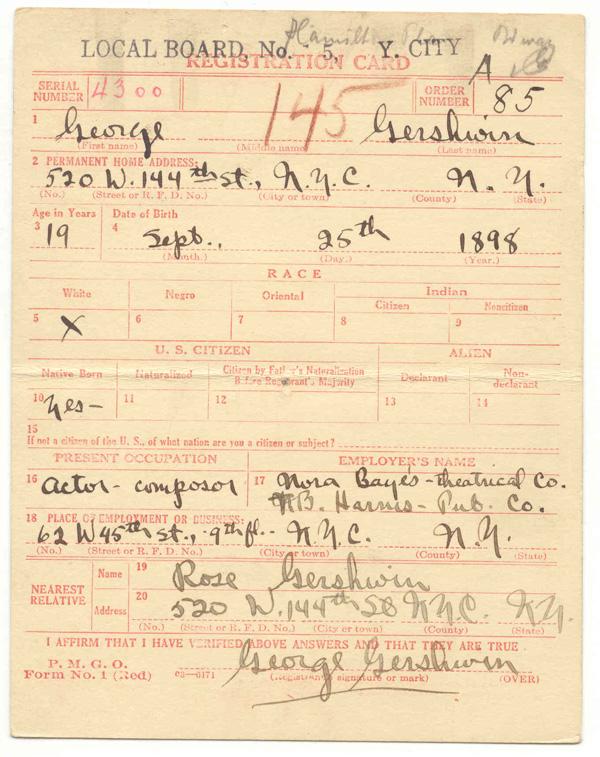 LOCAL BOARD, No. 5, Y. CITY
REGISTRATION CARD
SERIAL NUMBER 4300 145 ORDER NUMBER A 85
1 George Gershwin
(First name) (Middle name) (Last name)
2 PERMANENT HOME ADDRESS:
520 W. 144th St., N.Y.C. N.Y.
(No.) (Street or R. F. D. No.) (City or town) (County) (State)
Age in Years Date of Birth
3 19 4 Sept., 25th 1898
(Month.) (Day.) (Year.)
RACE
White Negro Oriental Indian
Citizen Noncitizen
5 X 6 7 8 9
U. S. CITIZEN ALIEN
Native Born Naturalized Citizen by Father's Naturalization Before Registrant's Majority Declarant Non-declarant
10 Yes- 11 12 13 14
15
If not a citizen of the U. S., of what nation are you a citizen or subject?
PRESENT OCCUPATION EMPLOYER'S NAME
16 actor - composor 17 Nora Bayes - theatrical Co.
Harris - Pub. Co.
18 PLACE OF EMPLOYMENT OR BUSINESS:
62 W 45th St., 9th fl. - N.Y.C. N.Y.
(No.) (Street or R. F. D. No.) (City or town) (County) (State)
NEAREST RELATIVE
Name 19 Rose Gershwin
Address 20 520 W. 144th St N.Y.C. N.Y.
(No.) (Street or R. F. D. No.) (City or town) (County) (State)
I AFFIRM THAT I HAVE VERIFIED ABOVE ANSWERS AND THAT THEY ARE TRUE
P. M. G. O.
Form No. 1 (Red) 03—6171 George Gershwin
(Registrant's signature or mark) (OVER)